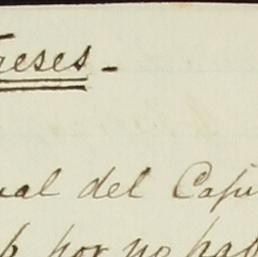 reses_
ual del Capi
por no hab